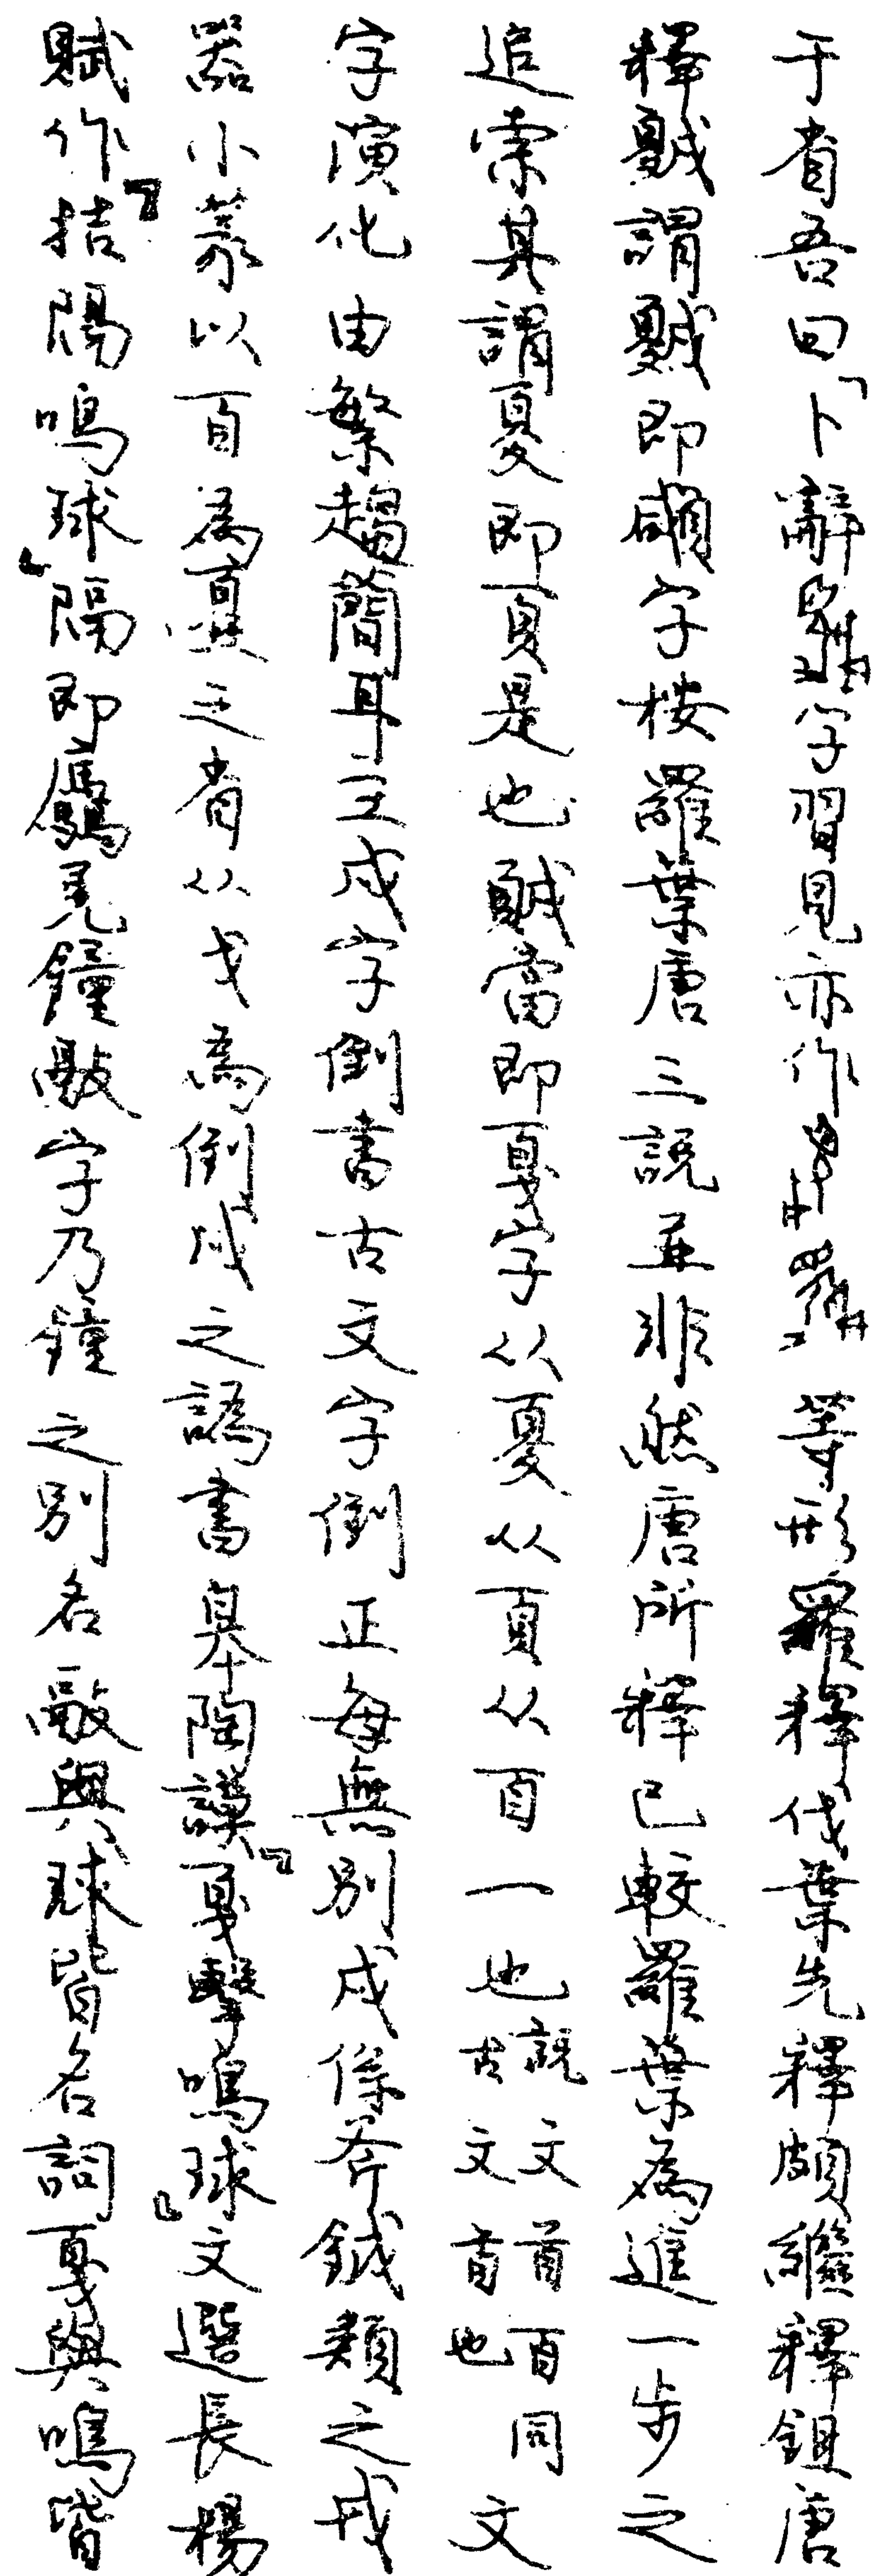 于省吾曰「卜辭字習見亦作等形羅釋伐葉先釋頗繼釋鉏唐
釋謂即字按羅葉唐三説並非然唐所釋已較羅葉為進一步之
追索其謂夏即頁是也當即戛字从夏从頁从百一也説文首百同古文百也文
字演化由繁趨簡耳至戍字倒書古文字倒正每無別戍係斧鉞類之戎
器小篆以百為之省从戈為倒戍之譌書皋陶謨「戛擊鳴球」文選長楊
賦作「拮隔鳴球」隔即鷹羌鐘字乃鐘之別名與球皆名詞戛與鳴皆